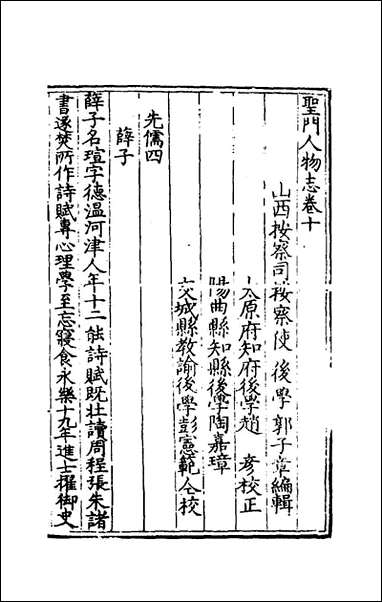 聖門人物志卷十
山西按察司按察使後學郭子章編輯
太原府知府後學趙彥校正
陽曲縣知縣後學陶嘉璋
交城縣教諭後學彭憲範仝校
先儒四
薛子
薛子名瑄字德溫河津人年十二能詩賦既壯讀周程張朱諸
書遂焚所作詩賦專心理學至忘寢食永樂十九年進士擢御史